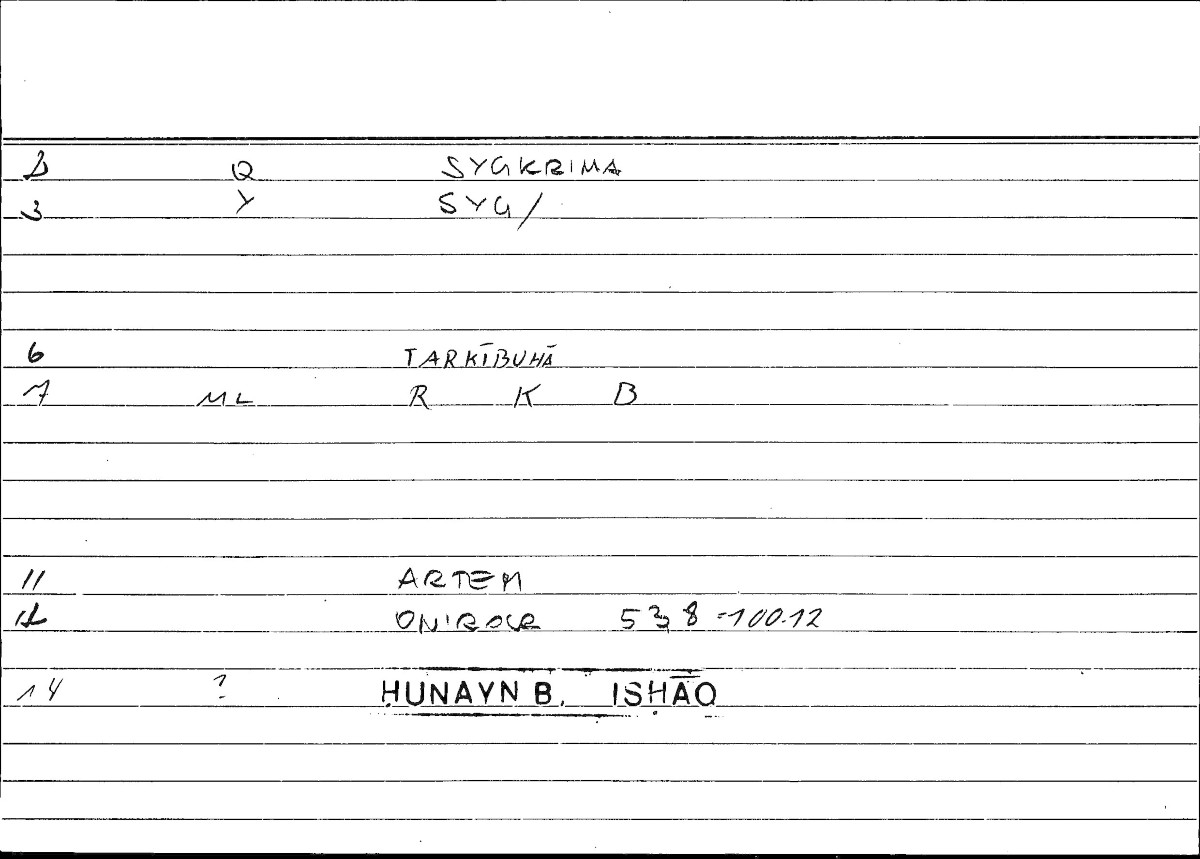 2 Q SYGKRIMA
3 Y SYG/
6 TARKĪBUHĀ
7 ML R K B
11 ARTEM
12 ONIROCR 538 =100.12
14 ? ḤUNAYN B. ISḤĀQ